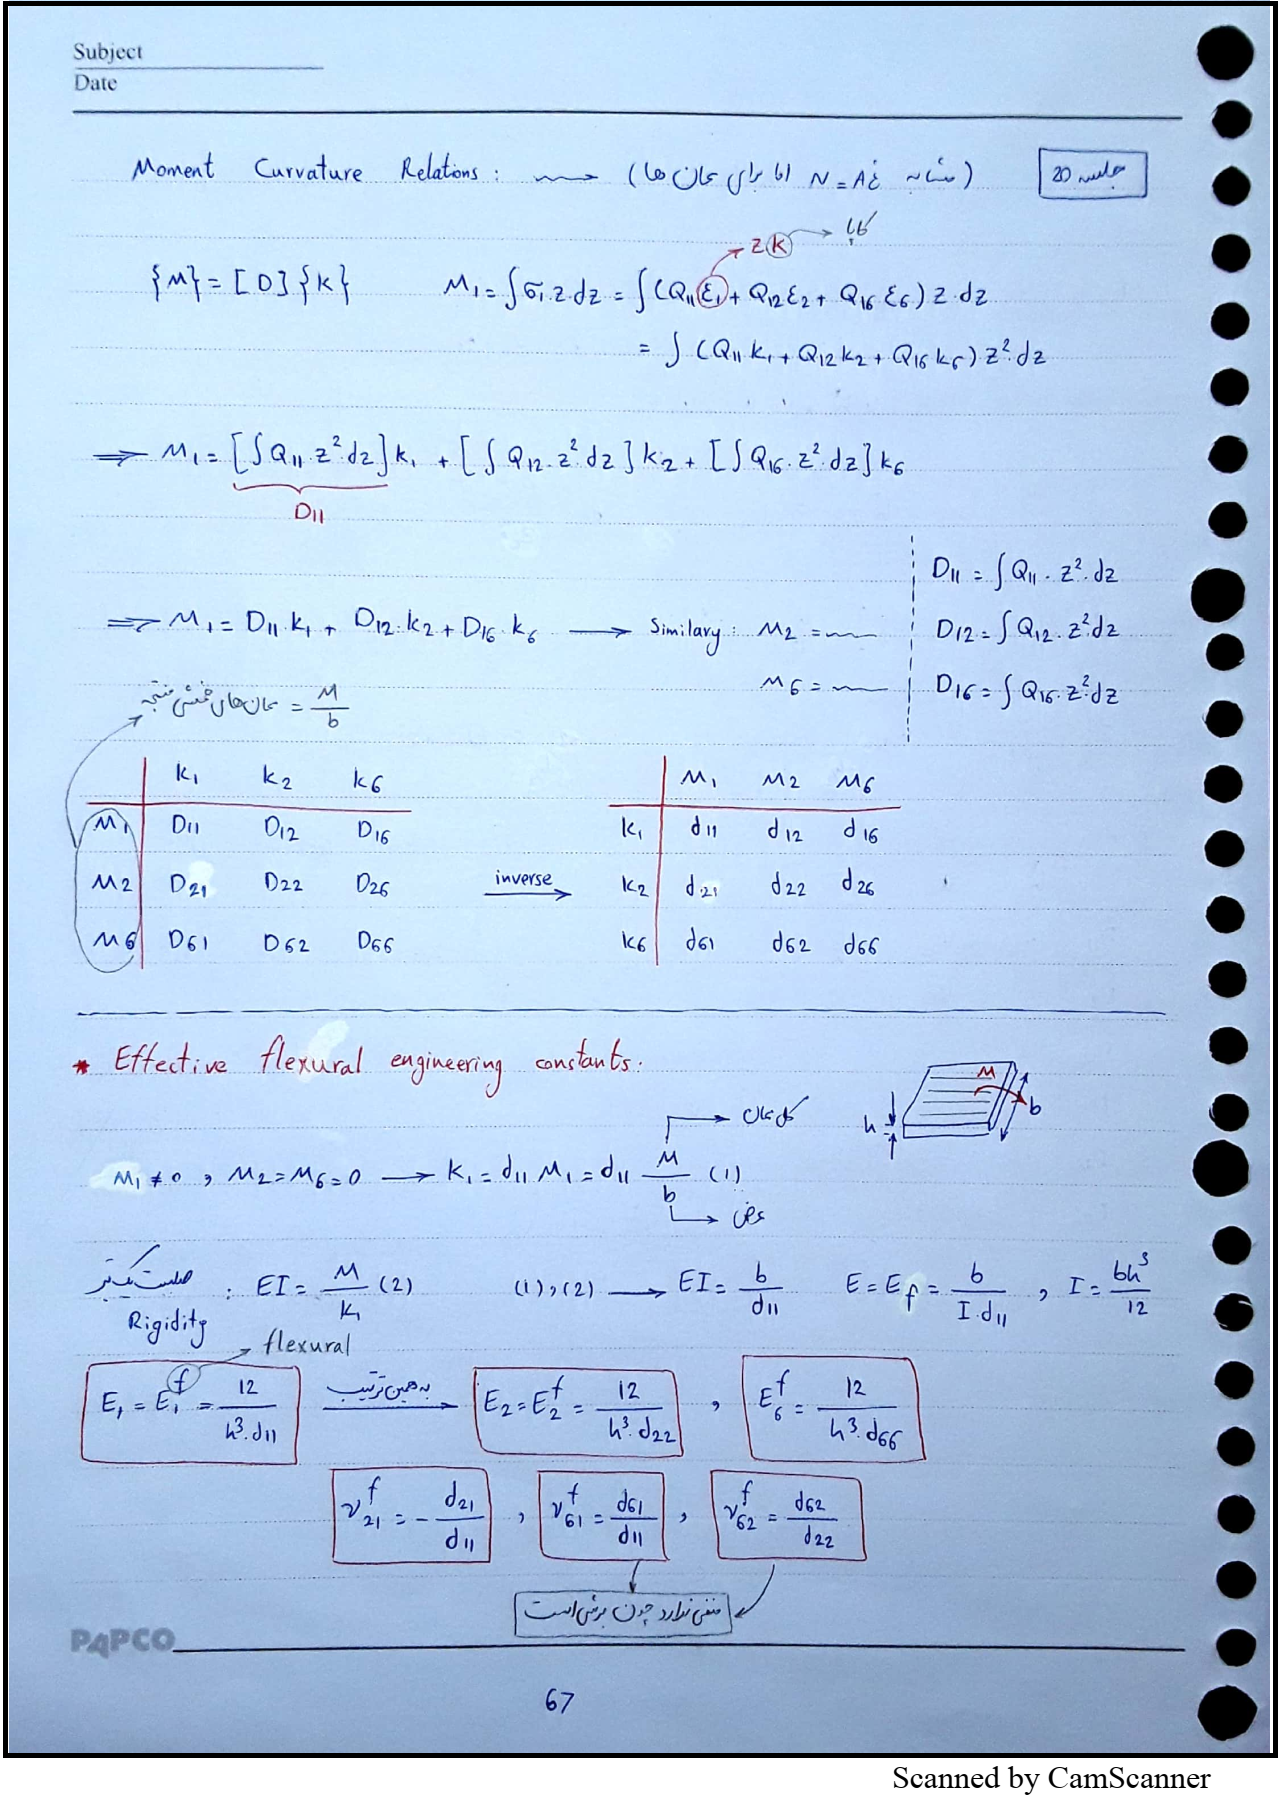 Subject
Date
Moment Curvature Relations : → (مشابه N = Aε̊ اما برای ممان ها) جلسه 20
z k → کاپا
{M} = [D]{k} M₁ = ∫σ₁.z dz = ∫(Q₁₁ε₁ + Q₁₂ε₂ + Q₁₆ε₆) z dz
= ∫(Q₁₁k₁ + Q₁₂k₂ + Q₁₆k₆) z².dz
⇒ M₁ = [∫Q₁₁.z²dz]k₁ + [∫Q₁₂.z².dz]k₂ + [∫Q₁₆.z².dz]k₆
D₁₁
D₁₁ = ∫Q₁₁.z².dz
⇒ M₁ = D₁₁.k₁ + D₁₂.k₂ + D₁₆.k₆ → Similary : M₂ = D₁₂ = ∫Q₁₂.z²dz
M₆ = D₁₆ = ∫Q₁₆.z².dz
ممان های خمشی منتجه = M/b
k₁ k₂ k₆ M₁ M₂ M₆
M₁ D₁₁ D₁₂ D₁₆ k₁ d₁₁ d₁₂ d₁₆
M₂ D₂₁ D₂₂ D₂₆ inverse → k₂ d₂₁ d₂₂ d₂₆
M₆ D₆₁ D₆₂ D₆₆ k₆ d₆₁ d₆₂ d₆₆
* Effective flexural engineering constants.
M b h
→ کل ممان
M₁ ≠ 0 , M₂ = M₆ = 0 → k₁ = d₁₁M₁ = d₁₁ M/b (1)
→ عرض
صلبیت یک تیر : EI = M/k₁ (2) (1),(2) → EI = b/d₁₁ E = E_f = b/(I.d₁₁) , I = bh³/12
Rigidity
flexural
E₁ = E₁ᶠ = 12/(h³.d₁₁) به همین ترتیب → E₂ = E₂ᶠ = 12/(h³.d₂₂) , E₆ᶠ = 12/(h³.d₆₆)
ν₂₁ᶠ = - d₂₁/d₁₁ , ν₆₁ᶠ = d₆₁/d₁₁ , ν₆₂ᶠ = d₆₂/d₂₂
منفی ندارد چون برشی است
PAPCO
67
Scanned by CamScanner